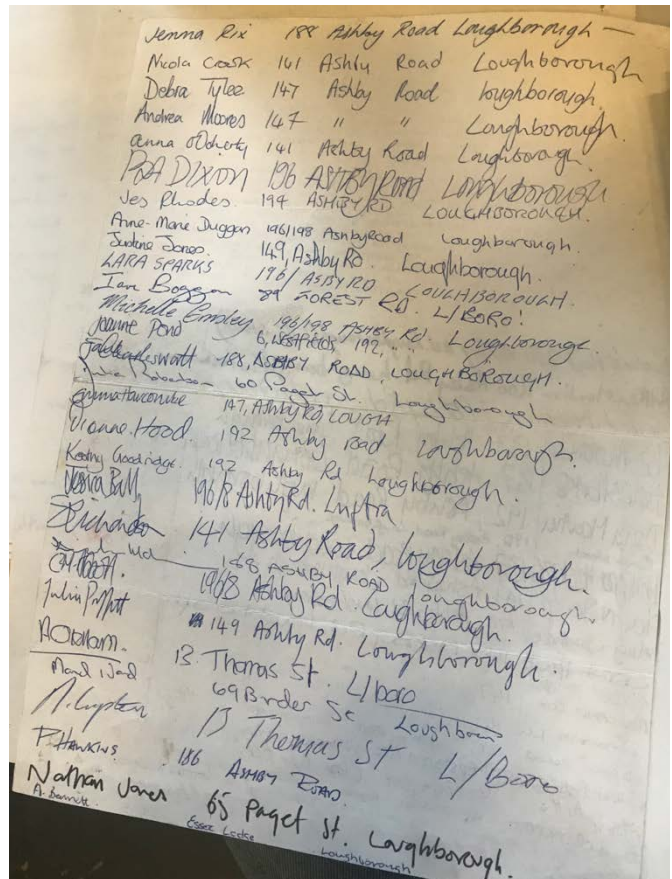 Jenna Rix 188 Ashby Road Loughborough
Nicola Cook 141 Ashby Road Loughborough
Debra Tylee 147 Ashby Road loughborough.
Andrea Moores 147 " " Loughborough.
anna o'Doherty 141 Ashby Road Loughborough.
DIXON 196 ASHBY ROAD Loughborough
Jes Rhodes. 194 ASHBY RD LOUGHBOROUGH.
Anne-Marie Duggan 196/198 Ashby Road Loughborough.
Justine Jones. 149, Ashby Rd. Loughborough.
LARA SPARKS 196/ ASHBY RD LOUGHBOROUGH.
Ian 89 FOREST RD. L/BORO!
Michelle 196/198 ASHBY Rd. Loughborough.
Joanne Pond 6, WESTFIELDS, 192, " "
188, ASHBY ROAD, LOUGHBOROUGH.
60 Paget St. Loughborough
147, Ashby Rd, LOUGH
Dianne. Hood. 192 Ashby road Loughborough.
Goodridge. 192 Ashby Rd Loughborough.
196/8 Ashby Rd.
141 Ashby Road, loughborough.
168 ASHBY ROAD Loughborough.
196/8 Ashby Rd. Loughborough.
Julia 149 Ashby Rd. Loughborough.
13. Thomas St. L/boro
69 St Loughboro
13 Thomas St L/Boro
P. HAWKINS 186 ASHBY ROAD.
Nathan Jones 65 Paget St. Loughborough.
A. Bennett Essex Lodge Loughborough